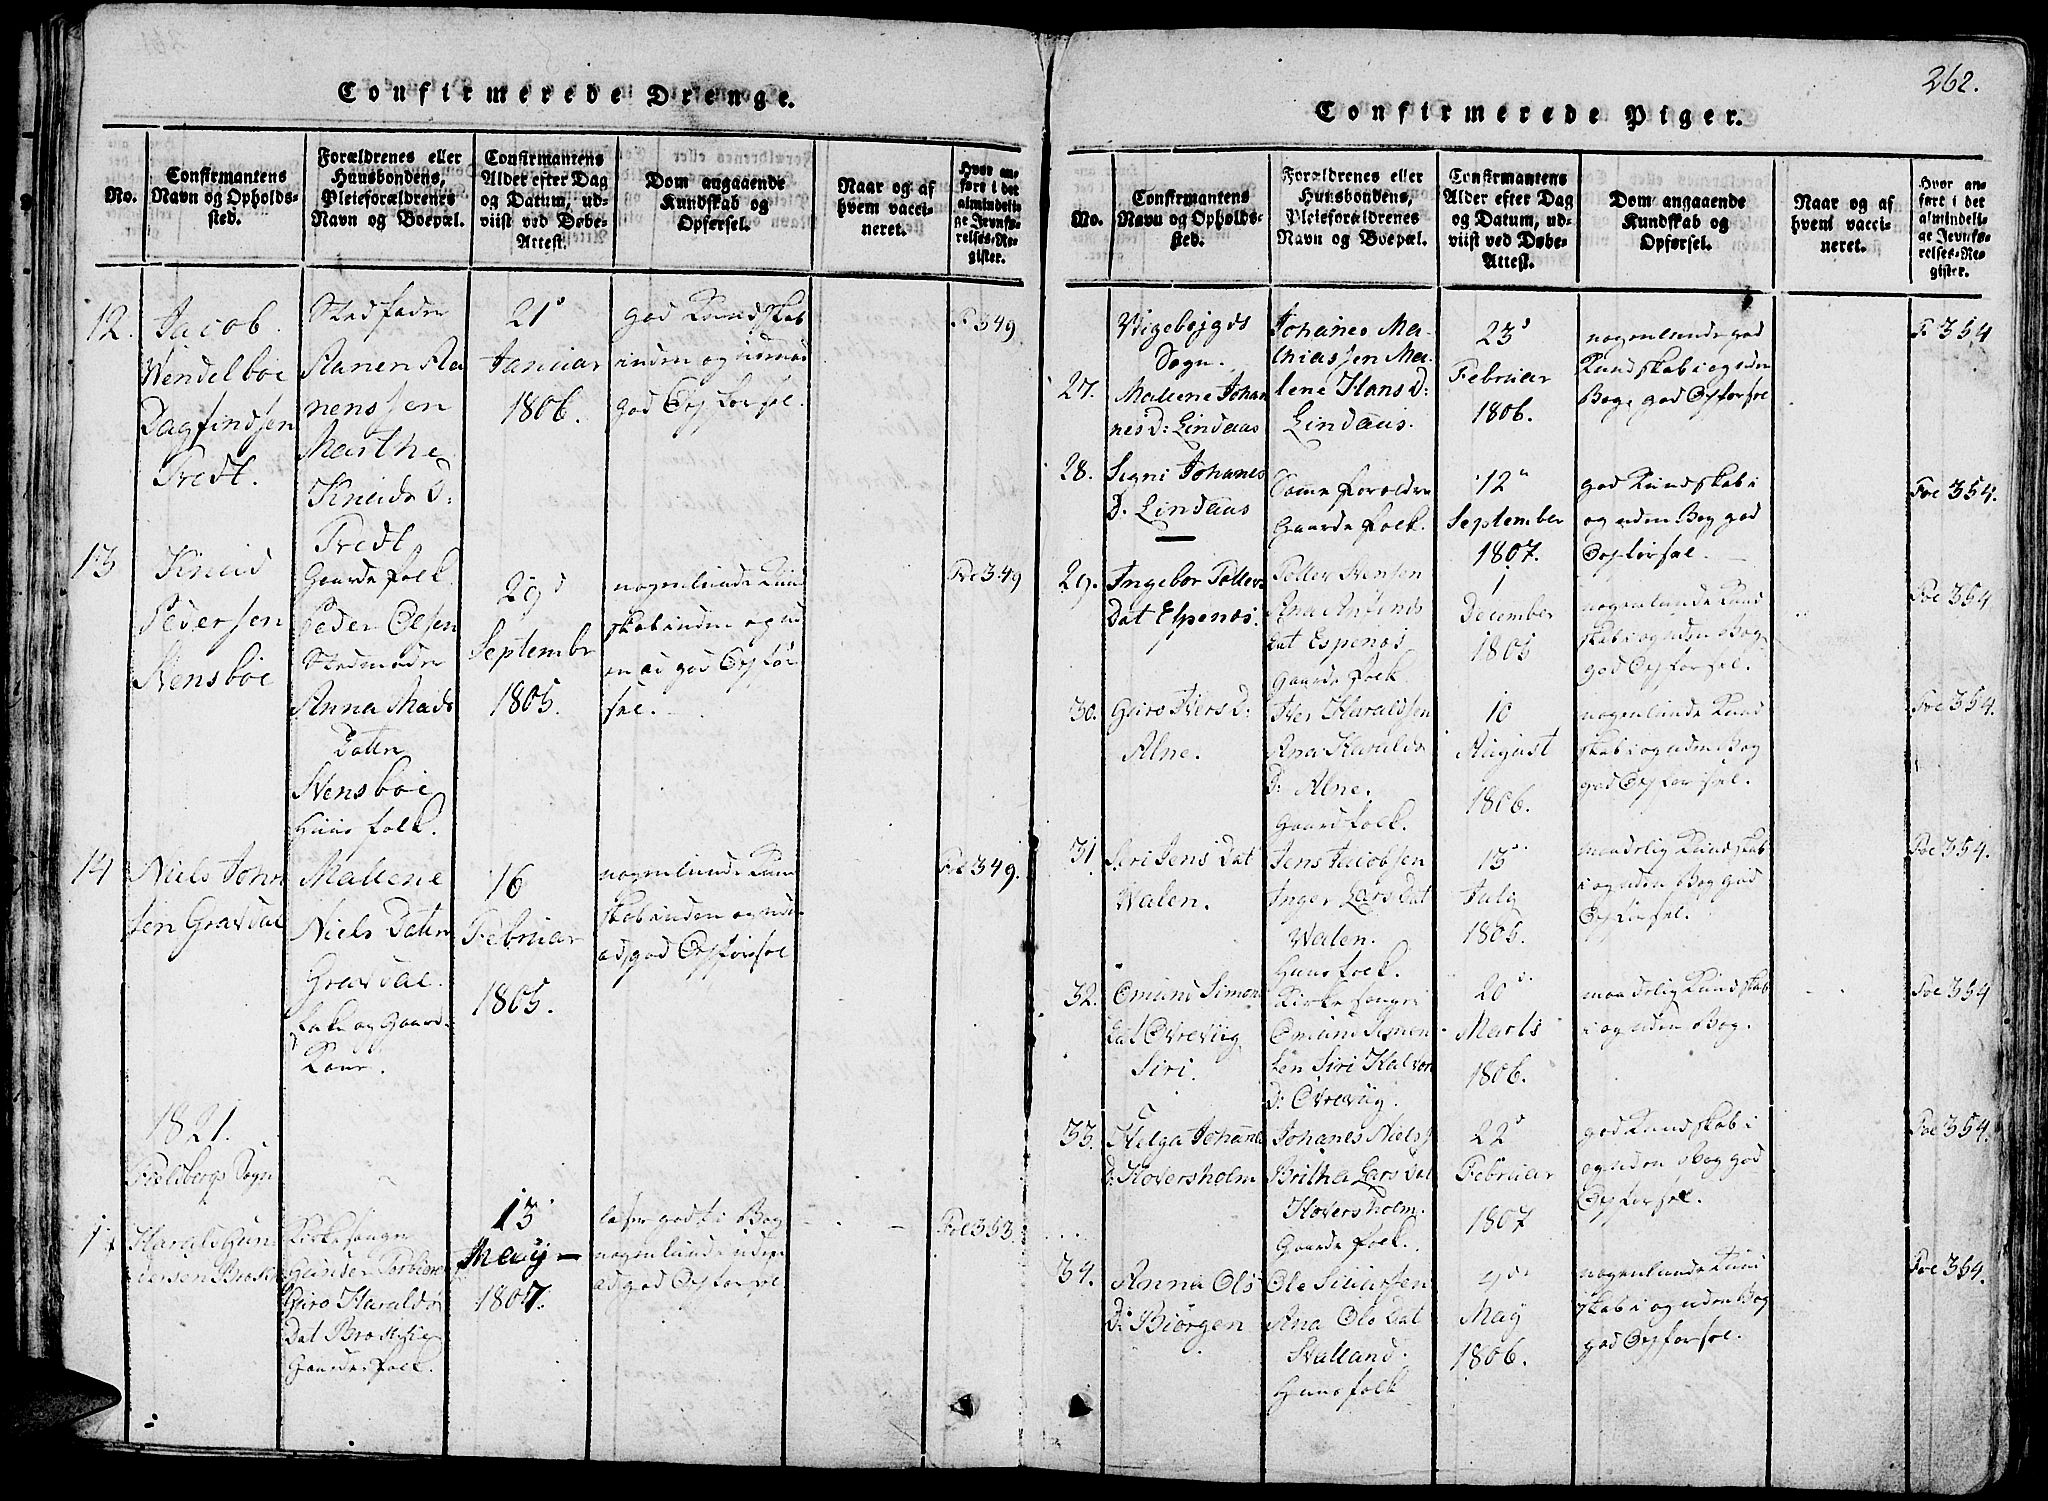 Confirmerede Drenge.
No.
Confirmantens
Navn og Opholds-
sted.
Forældrenes eller
Huusbondens,
Pleieforældrenes
Navn og Boepæl.
Confirmantens
Alder efter Dag
og Datum, ud-
viist ved Døbe-
Attest.
Dom angaaende
Kundskab og
Opførsel.
Naar og af
hvem vacci-
neret.
Hvor an-
ført i det
almindeli-
ge Jevnfø-
relses-Re-
gister.
12.
Jacob
Wendelboe
Dagfindsen
Tredt.
Stedfader
Aanen Aa
nenssen
Marthe
Knuds D:
Tredt
Gaardefolk.
21
Januar
1806.
god Kundskab
inden og uden ad
god Opførsel.
F 349
13
Knud
Pedersen
Stensboe
Peder Olsen
Stedmoder
Anna Mads
Datter
Stensboe
Huusfolk.
29
Septembr
1805.
nogenlunde Kund
skab inden og ud
en ad god Opfør
sel.
Foe 349
14
Niels John
sen Gravdal
Mallene
Niels Datter
Gravdal.
Enke og Gaard-
Kone.
16
Februar
1805.
nogenlunde Kund
skab inden og uden
ad, god Opførsel
Foe 349.
1821.
Fielsbergs Sogn
1.
Harald Gun
dersen
Kirkesanger
Gunder
Giro Haralds
Dat
Gaardefolk.
13
May
1807.
læser godt i Bog
nogenlunde uden
ad god Opførsel
Foe 353.
262.
Confirmerede Piger.
No.
Confirmantens
Navn og Opholds-
sted.
Forældrenes eller
Huusbondens,
Pleieforældrenes
Navn og Boepæl.
Confirmantens
Alder efter Dag
og Datum, ud-
viist ved Døbe-
Attest.
Dom angaaende
Kundskab og
Opførsel.
Naar og af
hvem vacci-
neret.
Hvor an-
ført i det
almindeli-
ge Jevnfø-
relses-Re-
gister.
Vigebøygds
Sogn.
27.
Mallene Johan
nes D: Lindaas
Johanes Ma-
thiassen Ma-
lene Hans D:
Lindaas.
23
Februar
1806.
nogenlunde god
Kundskab i og uden
Bog, god Opførsel
F 354
28.
Segni Johanes
D. Lindaas
Samme Forældre
Gaardefolk.
12
September
1807.
god Kundskab i
og uden Bog god
Opførsel.
Foe 354.
29.
Ingebor Tollev
Dat Espenes.
Tollev Stensen
Ana
Dat Espenes
Gaardefolk
1
December
1805
nogenlunde Kund
skab i og uden Bog
god Opførsel.
Foe 354
30.
Guro Ivers D:
Alne.
Iver Haraldsen
Ana Haralds
D: Alne.
Gaardfolk.
10
August
1806.
nogenlunde Kund
skab i og uden Bog
god Opførsel.
Foe 354.
31
Seri Jens Dat
Walen.
Jens Jacobsen
Inger Lars Dat
Walen.
Huusfolk.
13
July
1805.
maadelig Kundskab
i og uden Bog god
Opførsel.
Foe 354.
32.
Omund Simon
Dat Øvreviig
Siri.
Kirkesanger
Omund Simon
sen Siri Halvor
D: Øvreviig.
20
Marts
1806.
maadelig Kundskab
i og uden Bog.
Foe 354
33.
Helga Johanes
D: Hoversholm
Johanes Niels
Britha Lars Dat
Hoversholm.
Gaardefolk.
22
Februar
1807
god Kundskab i
og uden Bog god
Opførsel.
Foe 354.
34.
Anna Ols
D: Biørgen
Ole Siursen
Ana Ols Dat
Stalland.
Huusfolk
May
1806.
nogenlunde Kund
skab i og uden Bog
god Opførsel.
Foe 354.